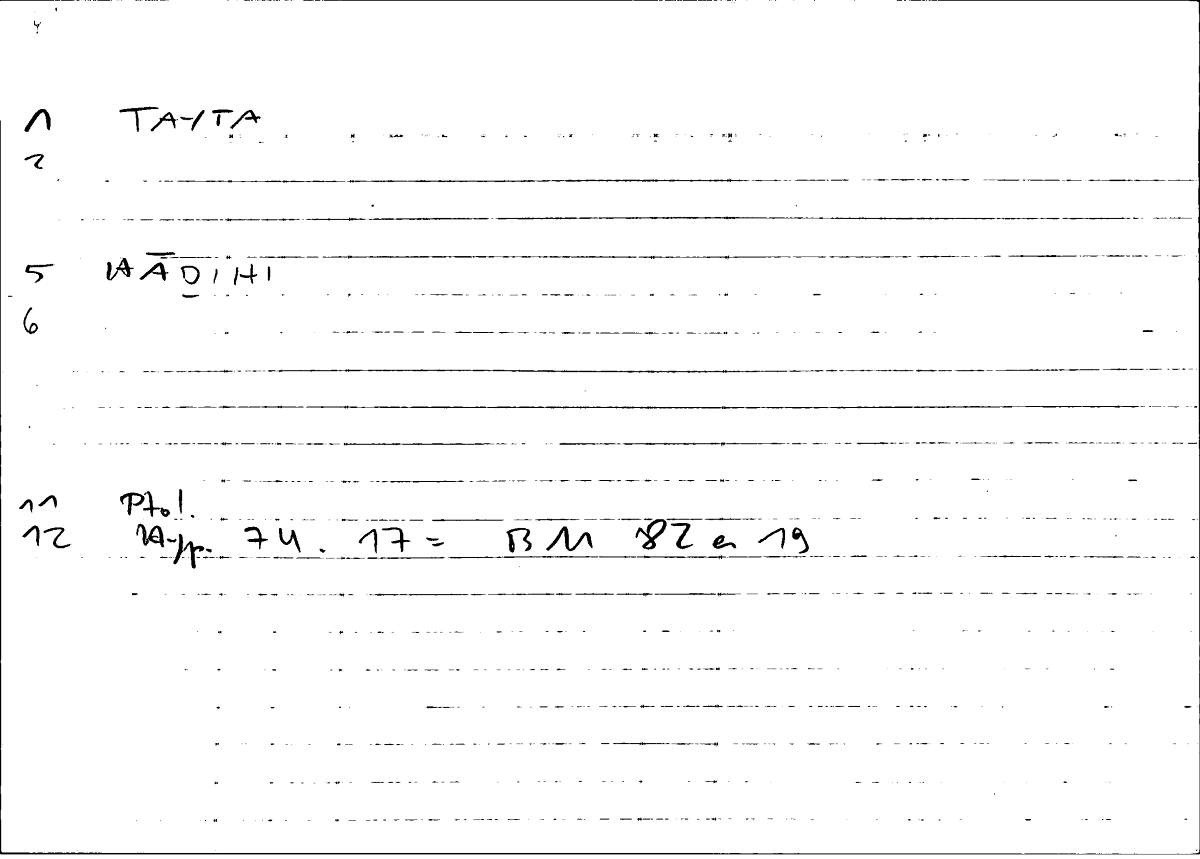 1 TA-ITA
2
5 WĀḎIHI
6
11 Ptol.
12 Hyp. 74. 17 = BM 82 a 19